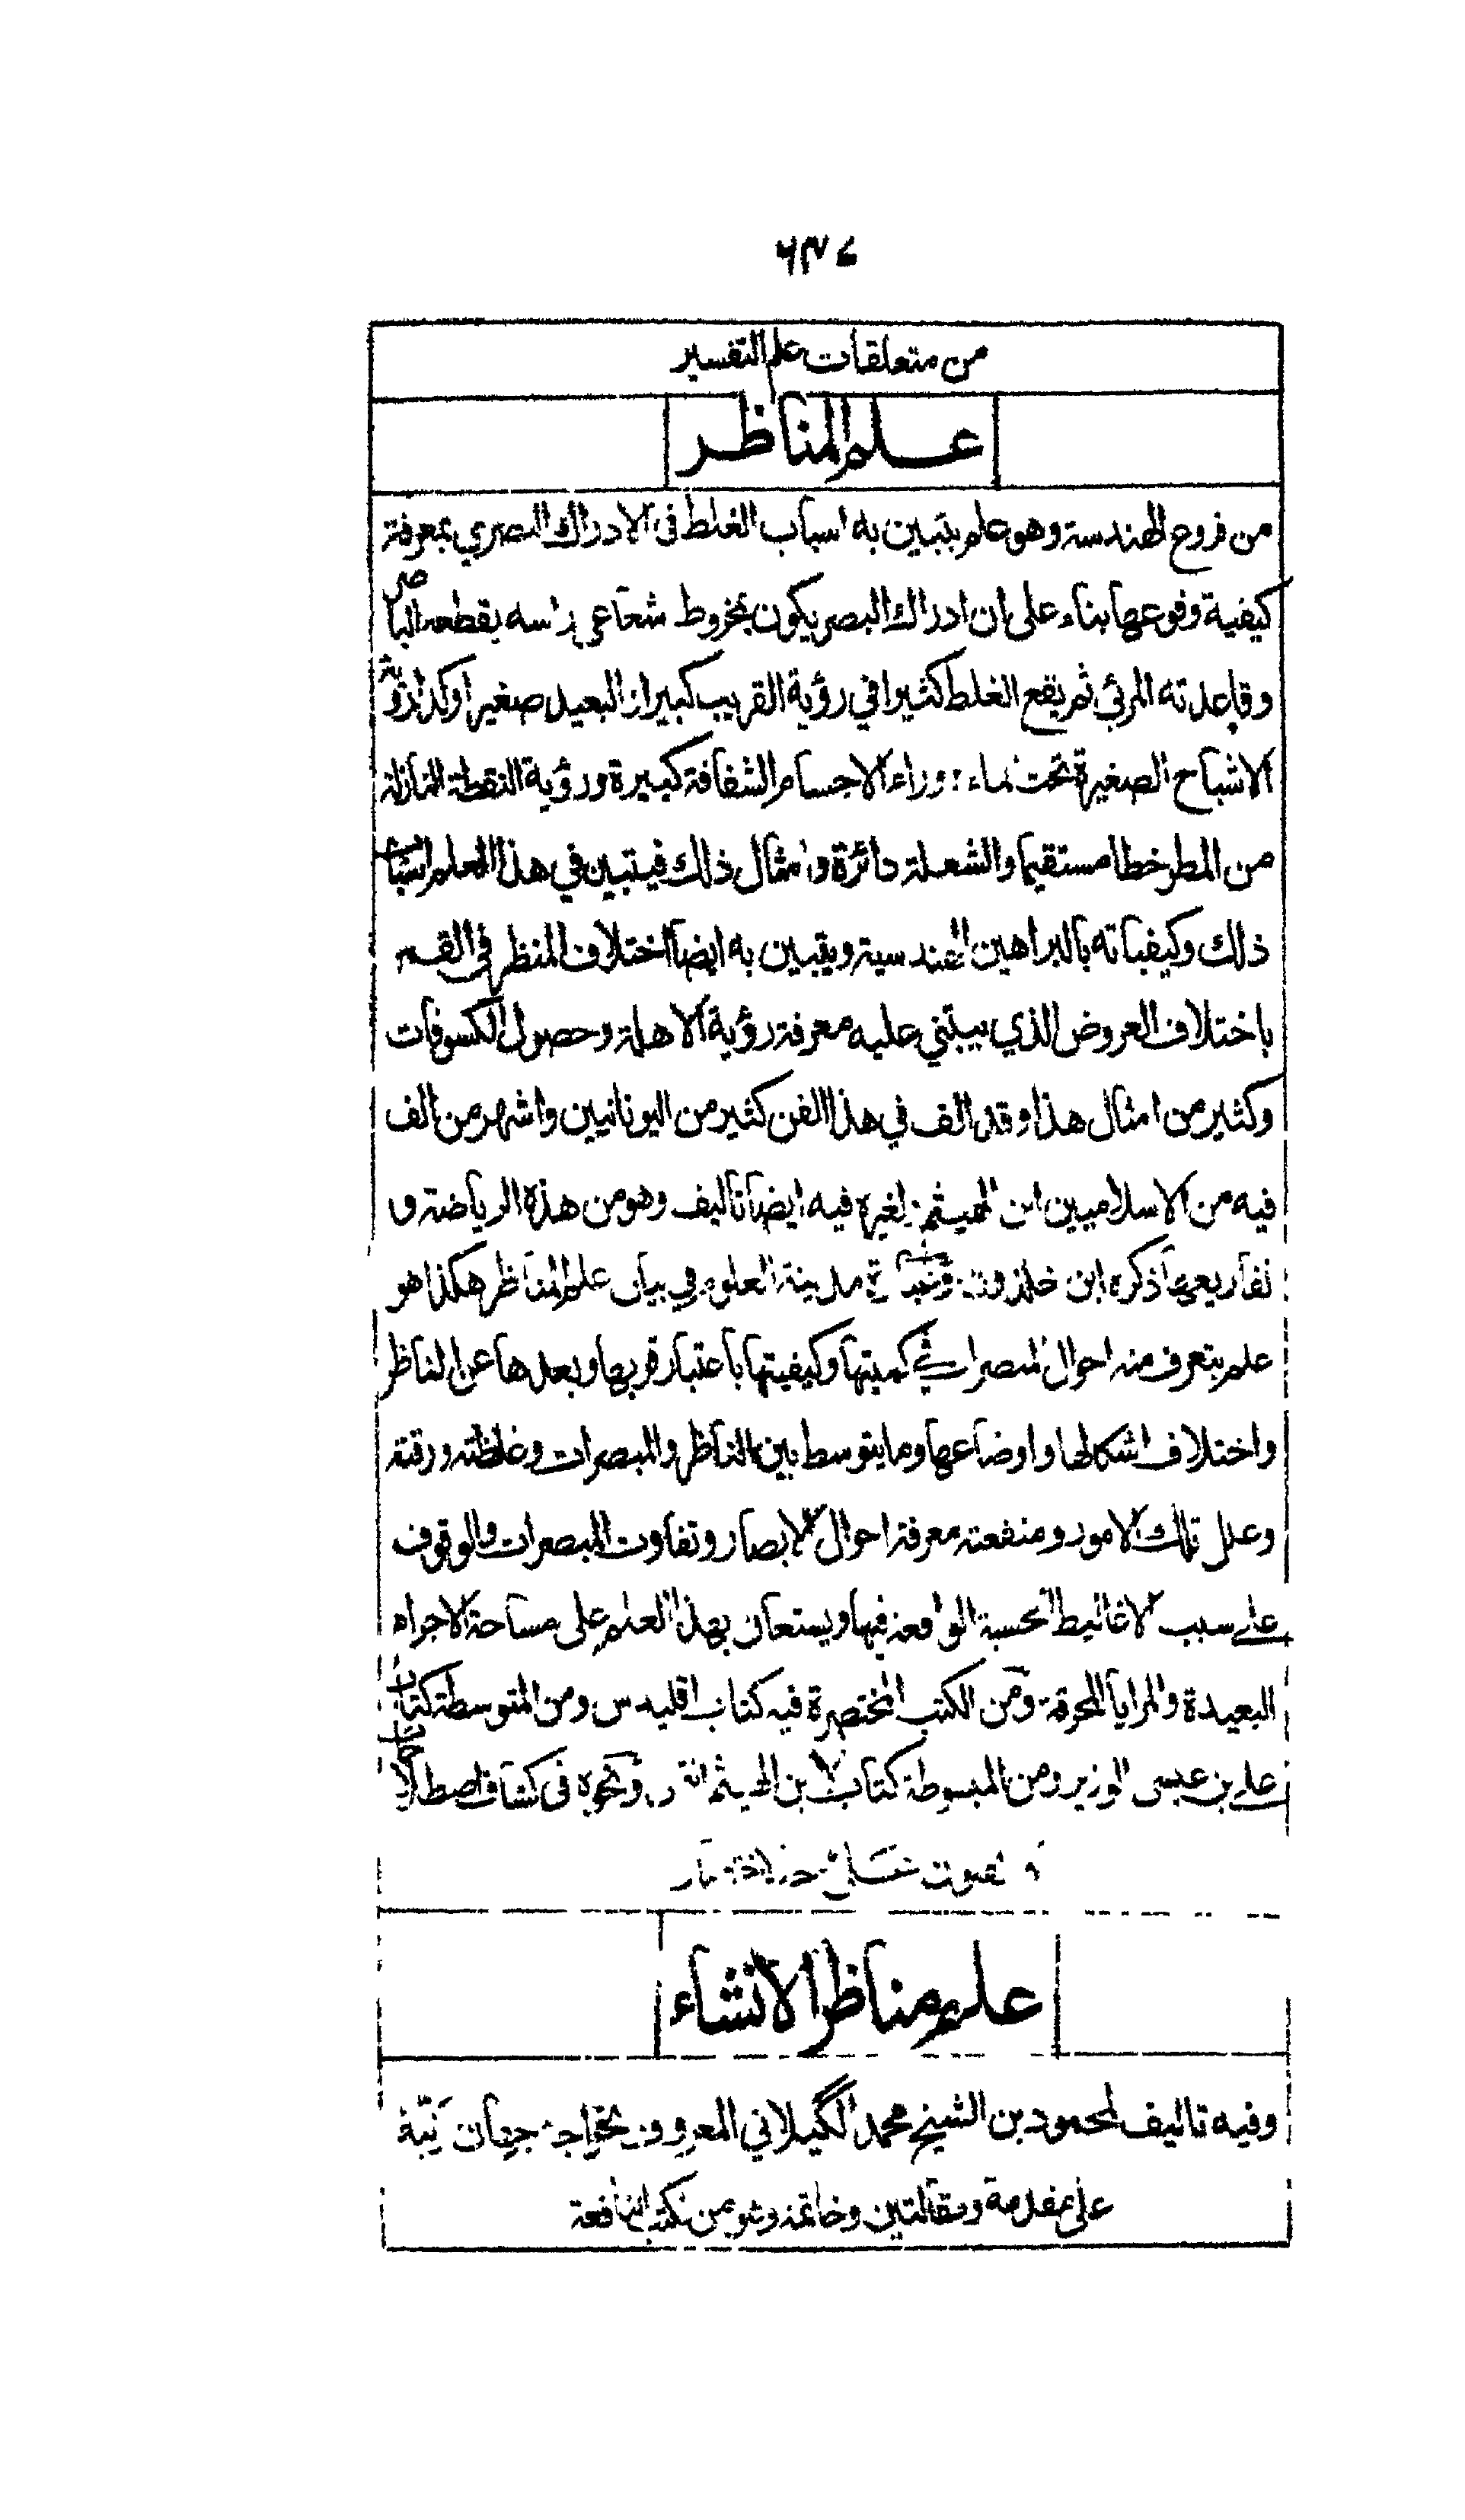 ٦٣٧
من متعلقات علم التفسير
علم المناظر
من فروع الهندسة وهو علم يتبين به اسباب الغلط في الادراك البصري بمعرفة
كيفية وقوعها بناء على ان ادراك البصر يكون بمخروط شعاعي راسه يقطعه الباصر
وقاعدته المرئي ثم يقع الغلط كثيرا في رؤية القريب كبيرا والبعيد صغيرا وكذا رؤية
الاشباح الصغيرة تحت الماء ووراء الاجسام الشفافة كبيرة ورؤية النقطة النازلة
من المطر خطا مستقيما والشعلة دائرة وامثال ذلك فيتبين في هذا العلم اسباب
ذلك وكيفياته بالبراهين الهندسية ويتبين به ايضا اختلاف المنظر في القمر
باختلاف العروض الذي يبتني عليه معرفة رؤية الاهلة وحصول الكسوفات
وكثير من امثال هذا وقد الف في هذا الفن كثير من اليونانيين واشهر من الف
فيه من الاسلاميين ابن الهيثم ولغيره فيه ايضا تاليف وهو من هذه الرياضة و
تفاريعها ذكره ابن خلدون مدينة العلوم في بيان علم المناظر هكذا هو
علم يتعرف منه احوال المبصرات في كميتها وكيفيتها باعتبار قربها وبعدها عن الناظر
واختلاف اشكالها واوضاعها وما يتوسط بين الناظر والمبصرات وغلظته ورقته
وعلل تلك الامور ومنفعته معرفة احوال الابصار وتفاوت المبصرات والوقوف
على سبب الاغاليط الحسية الواقعة فيها ويستعان بهذا العلم على مساحة الاجرام
البعيدة والمرايا المحرقة ومن الكتب المختصرة فيه كتاب اقليدس ومن المتوسطة كتاب
علي بن عيسى الوزير ومن المبسوطة كتاب لابن الهيثم انتهى ونحوه في كشاف اصطلاحات
الفنون
علم مناظر الانشاء
وفيه تاليف لمحمود بن الشيخ محمد الگيلاني المعروف بخواجه جهان رتبة
على مقدمة ومقالتين وخاتمة وهو من الكتب النافعة